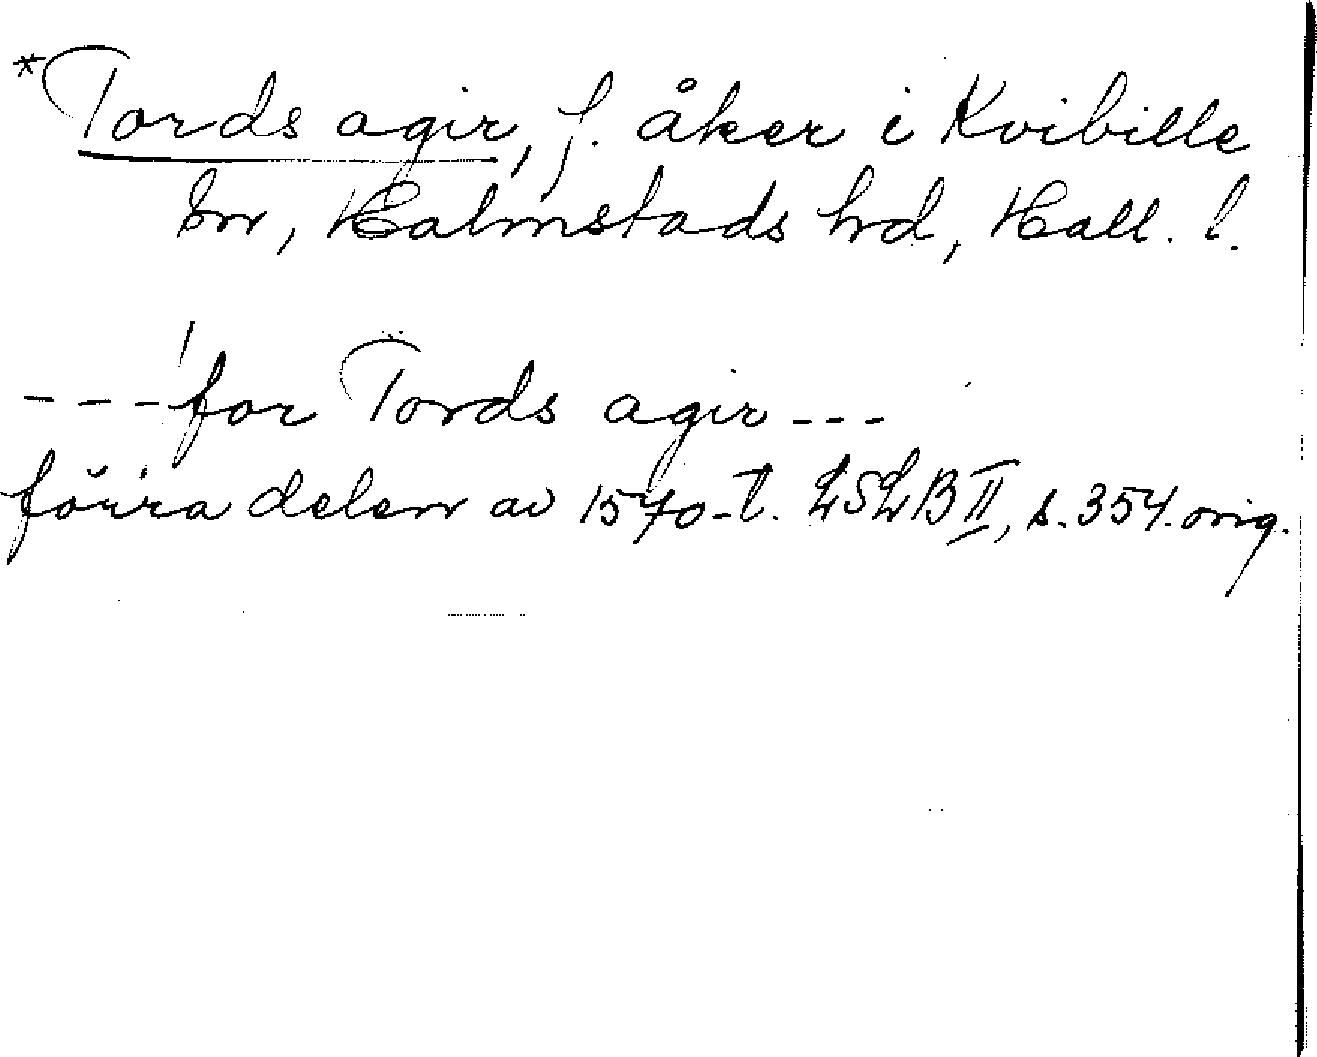 *Tords agir, f. åker i Kvibille
sn, Halmstads hrd, Hall. l.
---for Tords agir---
förra delen av 1570-t. LSLB II, s. 354. orig.